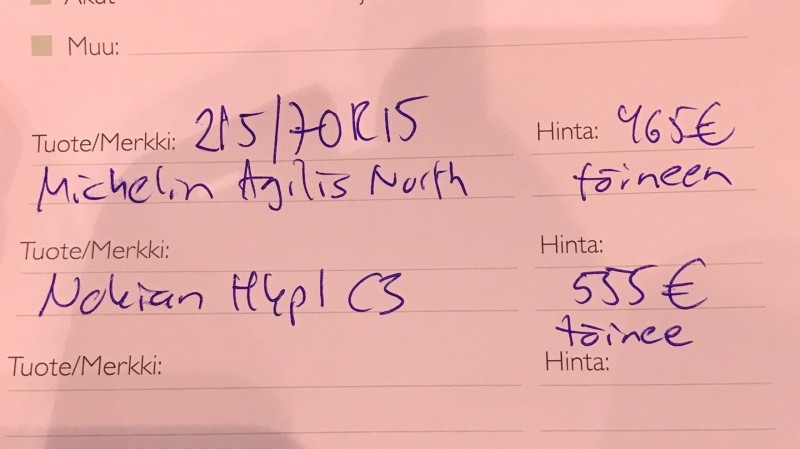 Muu:
Tuote/Merkki: 215/70R15 Hinta: 465€
Michelin Agilis North töineen
Tuote/Merkki: Hinta:
Nokian Hkpl C3 555€
töinee
Tuote/Merkki: Hinta: